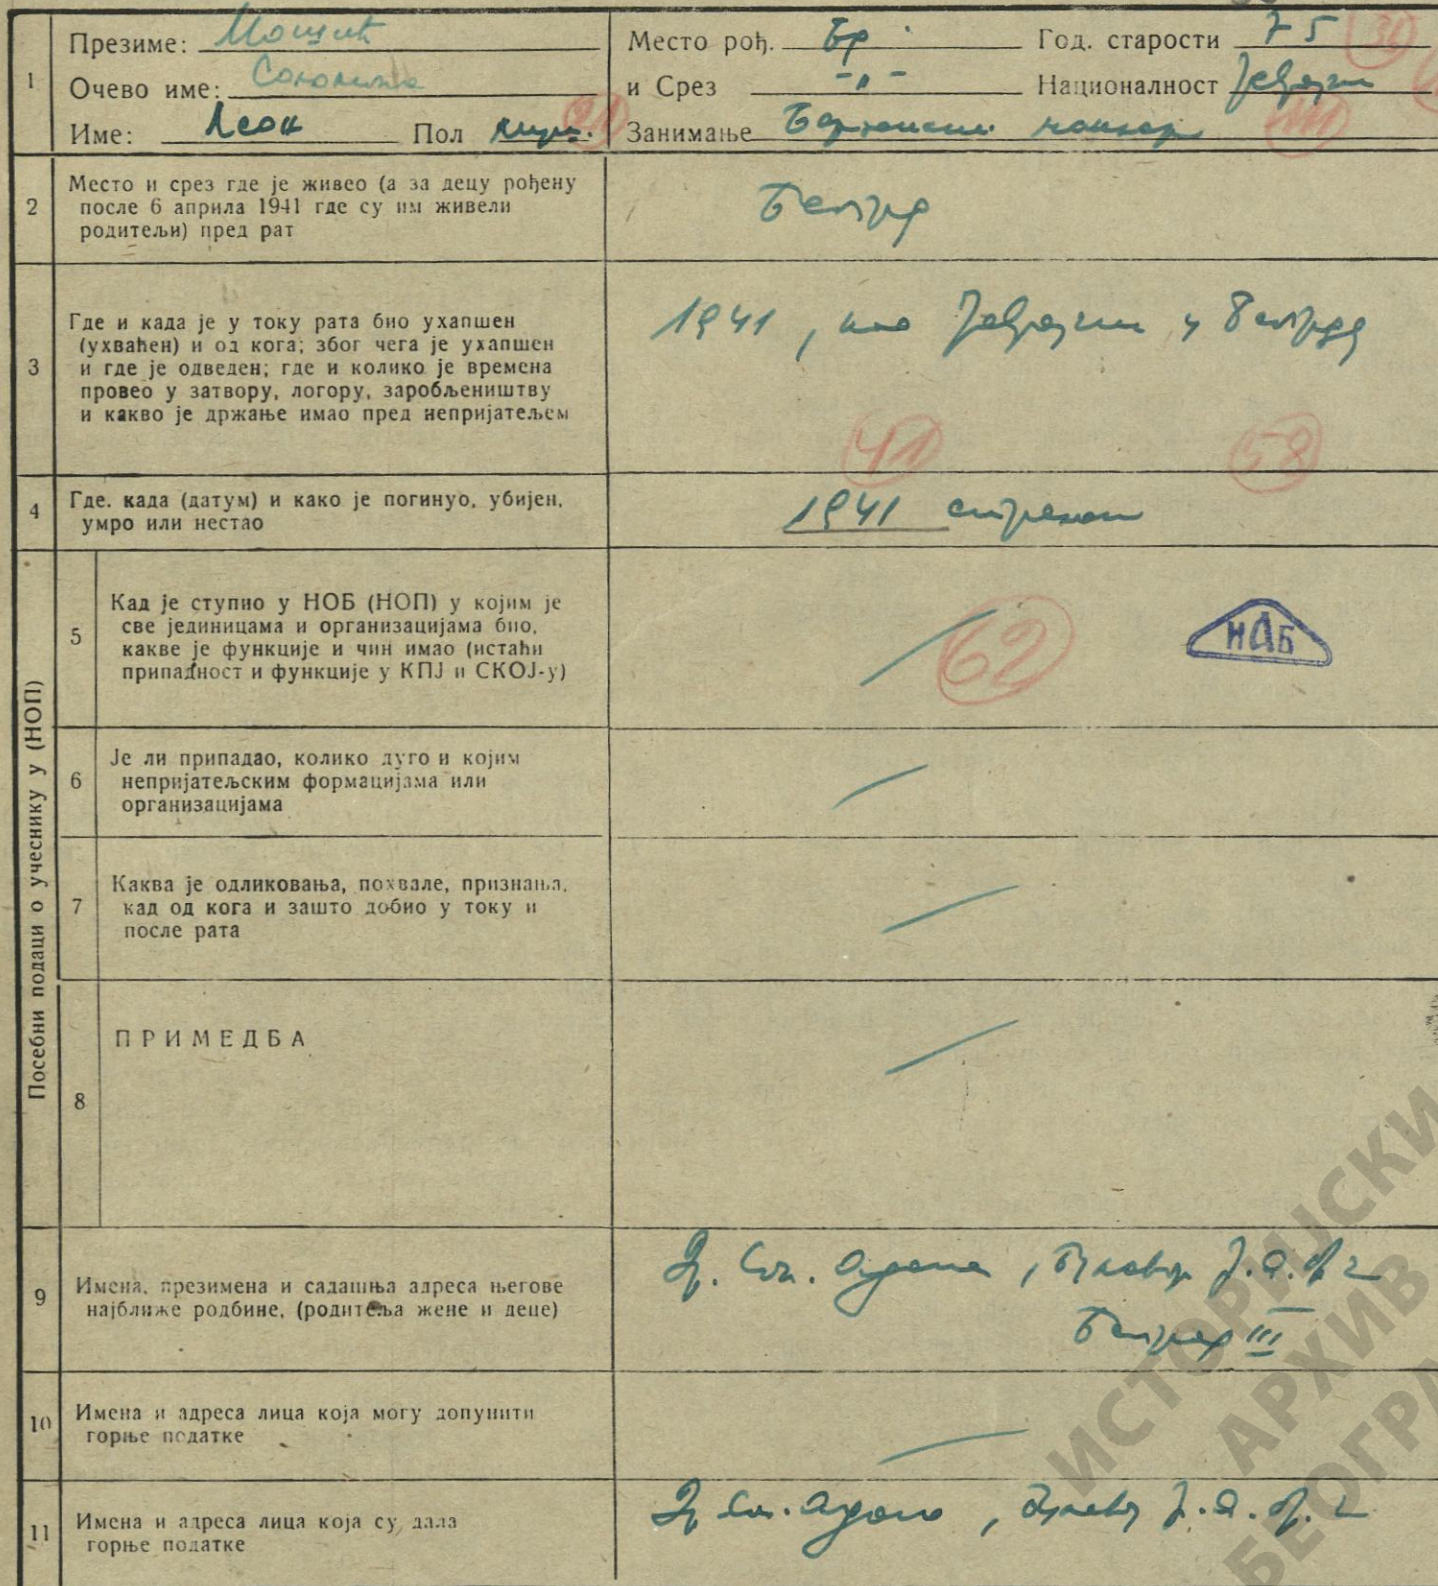 1
Презиме: Мошић
Очево име: Соломона
Име: Леон Пол муш. 21
Место рођ. Бг Год. старости 75 36
и Срез -"- Националност Јеврејин
Занимање чиновн
2
Место и срез где је живео (а за децу рођену
после 6 априла 1941 где су им живели
родитељи) пред рат
Београд
3
Где и када је у току рата био ухапшен
(ухваћен) и од кога; због чега је ухапшен
и где је одведен; где и колико је времена
провео у затвору, логору, заробљеништву
и какво је држање имао пред непријатељем
1941, као Јеврејин у Београду
41 58
4
Где. када (датум) и како је погинуо, убијен,
умро или нестао
1941 стрељан
Посебни подаци о учеснику у (НОП)
5
Кад је ступио у НОБ (НОП) у којим је
све јединицама и организацијама био,
какве је функције и чин имао (истаћи
припадност и функције у КПЈ и СКОЈ-у)
62 НАБ
6
Је ли припадао, колико дуго и којим
непријатељским формацијама или
организацијама
7
Каква је одликовања, похвале, признања,
кад од кога и зашто добио у току и
после рата
8
ПРИМЕДБА
9
Имена, презимена и садашња адреса његове
најближе родбине, (родитеља жене и деце)
Београд III
10
Имена и адреса лица која могу допунити
горње податке
11
Имена и адреса лица која су дала
горње податке
ИСТОРИЈСКИ
АРХИВ
БЕОГРА